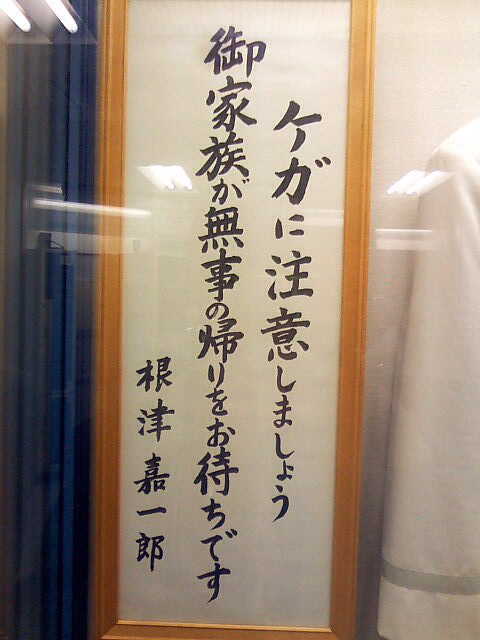 ケガに注意しましょう
御家族が無事の帰りをお待ちです
根津嘉一郎